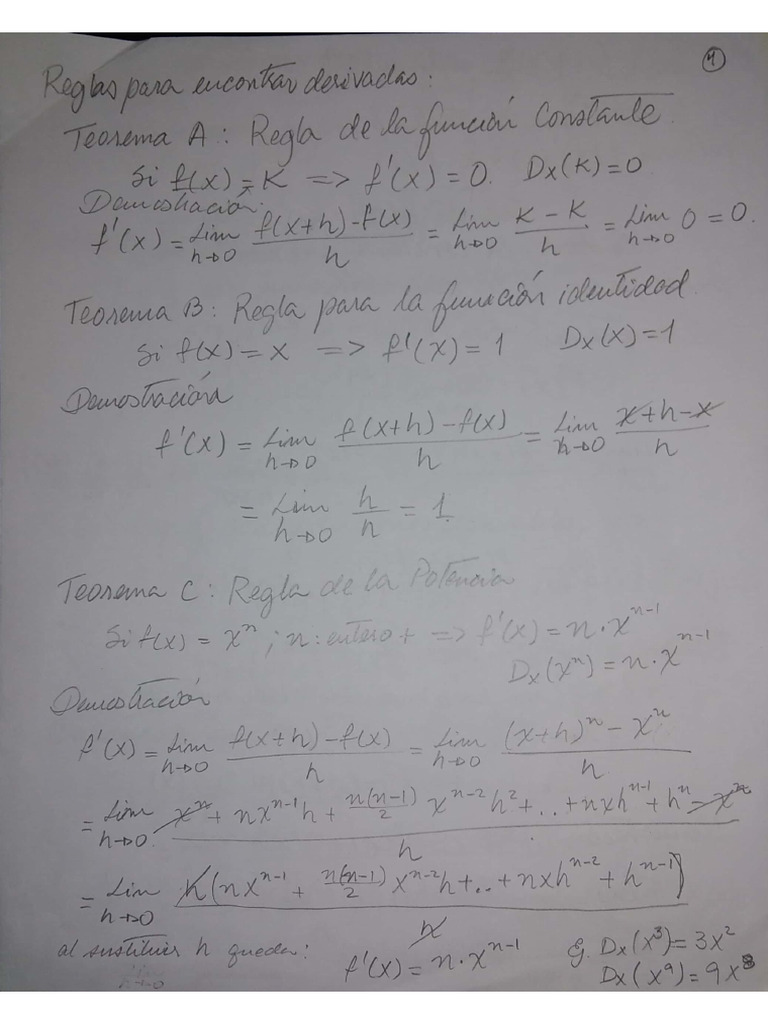 1
Reglas para encontrar derivadas:
Teorema A: Regla de la función Constante.
Si f(x) = K => f'(x) = 0. Dx(K) = 0
Demostración:
f'(x) = Lim h→0 f(x+h) - f(x) / h = Lim h→0 K - K / h = Lim h→0 0 = 0.
Teorema B: Regla para la función identidad
Si f(x) = x => f'(x) = 1 Dx(x) = 1
Demostración
f'(x) = Lim h→0 f(x+h) - f(x) / h = Lim h→0 x + h - x / h
= Lim h→0 h / h = 1.
Teorema C: Regla de la Potencia
Si f(x) = x^n ; n: entero + => f'(x) = n · x^n-1
Dx(x^n) = n · x^n-1
Demostración
f'(x) = Lim h→0 f(x+h) - f(x) / h = Lim h→0 (x+h)^n - x^n / h
= Lim h→0 x^n + nx^n-1 h + n(n-1)/2 x^n-2 h^2 + .. + nxh^n-1 + h^n - x^n / h
= Lim h→0 h(nx^n-1 + n(n-1)/2 x^n-2 h + .. + nxh^n-2 + h^n-1) / h
al sustituir h queda: f'(x) = n · x^n-1 Ej. Dx(x^3) = 3x^2
Dx(x^9) = 9x^8